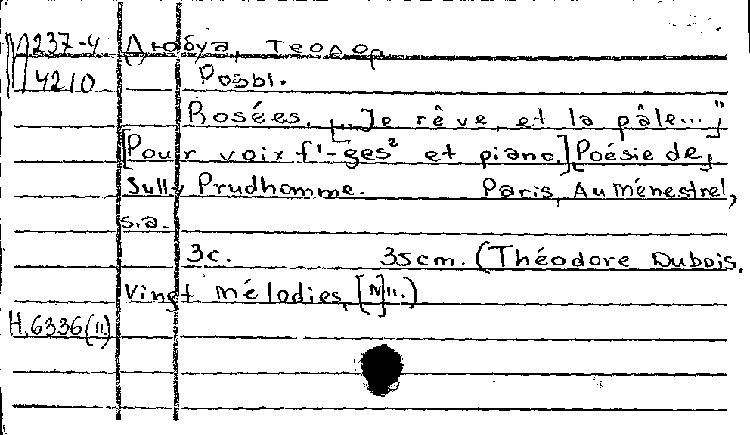 М237-4 Дюбуа, Теодор
4210 Росы.
Rosées. "...Je rêve, et la pâle..."
[Pour voix f'-ges² et piano.] Poésie de
Sully Prudhomme. Paris, Au ménestrel,
s.a.
3c. 35cm. (Théodore Dubois.
Vingt mélodies. [N]11.)
H.6336(11)